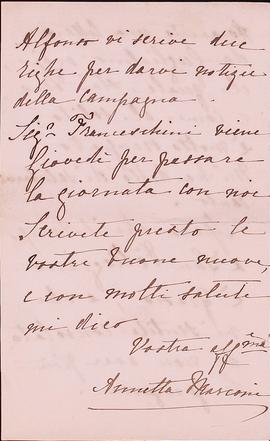 Alfonso vi scrive due
righe per darvi notizie
della campagna.
Sigra Franceschini viene
Giovedì per passare
la giornata con noi
Scrivete presto le
vostre buone nuove,
e con molti saluti
mi dico
Vostra affma
Annetta Marconi